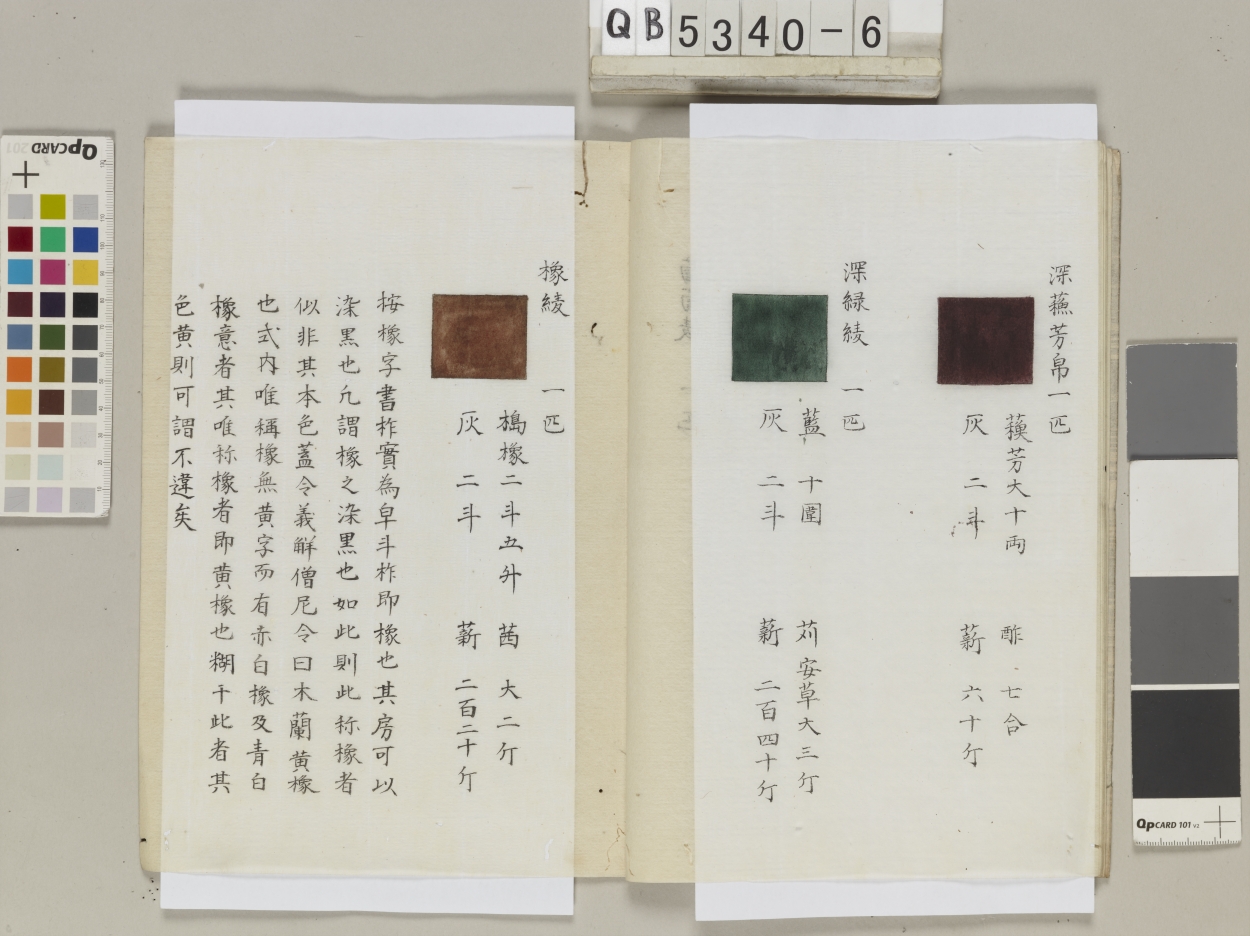 QB5340-6
深蘓芳帛一匹
蘓芳大十両 酢七合
灰二斗 薪六十斤
深緑綾 一匹
藍十圍 苅安草大三斤
灰二斗 薪二百四十斤
橡綾 一匹
搗橡二斗五升 茜大二斤
灰二斗 薪二百二十斤
桉橡字書柞實為皁斗柞即橡也其房可以
染黒也凢謂橡之染黒也如此則此称橡者
似非其本色蓋令義觧僧尼令曰木蘭黄橡
也式内唯稱橡無黄字而有赤白橡及青白
橡意者其唯称橡者即黄橡也糊干此者其
色黄則可謂不違矣
QpCARD 201
QpCARD 101 v2